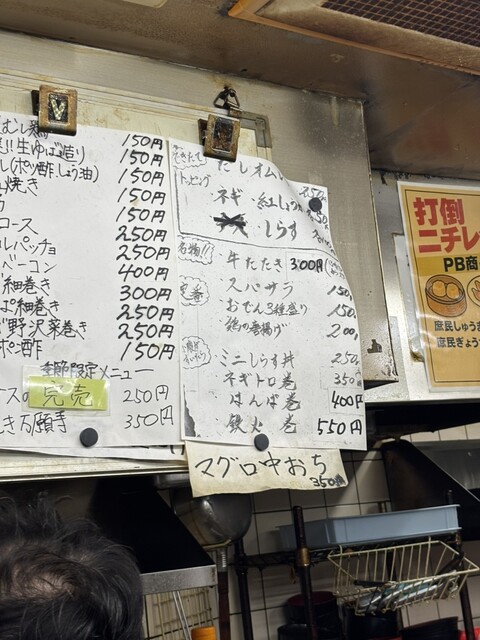 むし鶏 150円
!!生ゆば造り) 150円
し(ポン酢,しょう油) 150円
焼き 150円
150円
ロース 250円
ルパッチョ 250円
ベーコン 400円
細巻き 300円
細巻き 250円
野沢菜巻き 250円
ポン酢 150円
季節限定メニュー
完売 250円
き万願寺 350円
できたて だしオム
トッピング
ネギ・紅しょ
しらす
名物!! 牛たたき 300円
定番 スパサラ 150
おでん3種盛り 150
唐揚げ 200
ミニしらす丼 250
ネギトロ巻 350
はんぱ巻 400円
鉄火巻 550円
マグロ中おち
350円
打倒
ニチレ
PB商
庶民しゅう
庶民ぎょう